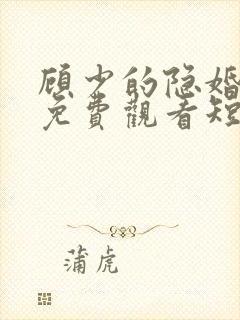 顾少的隐婚
免費觀看短
蒲虎